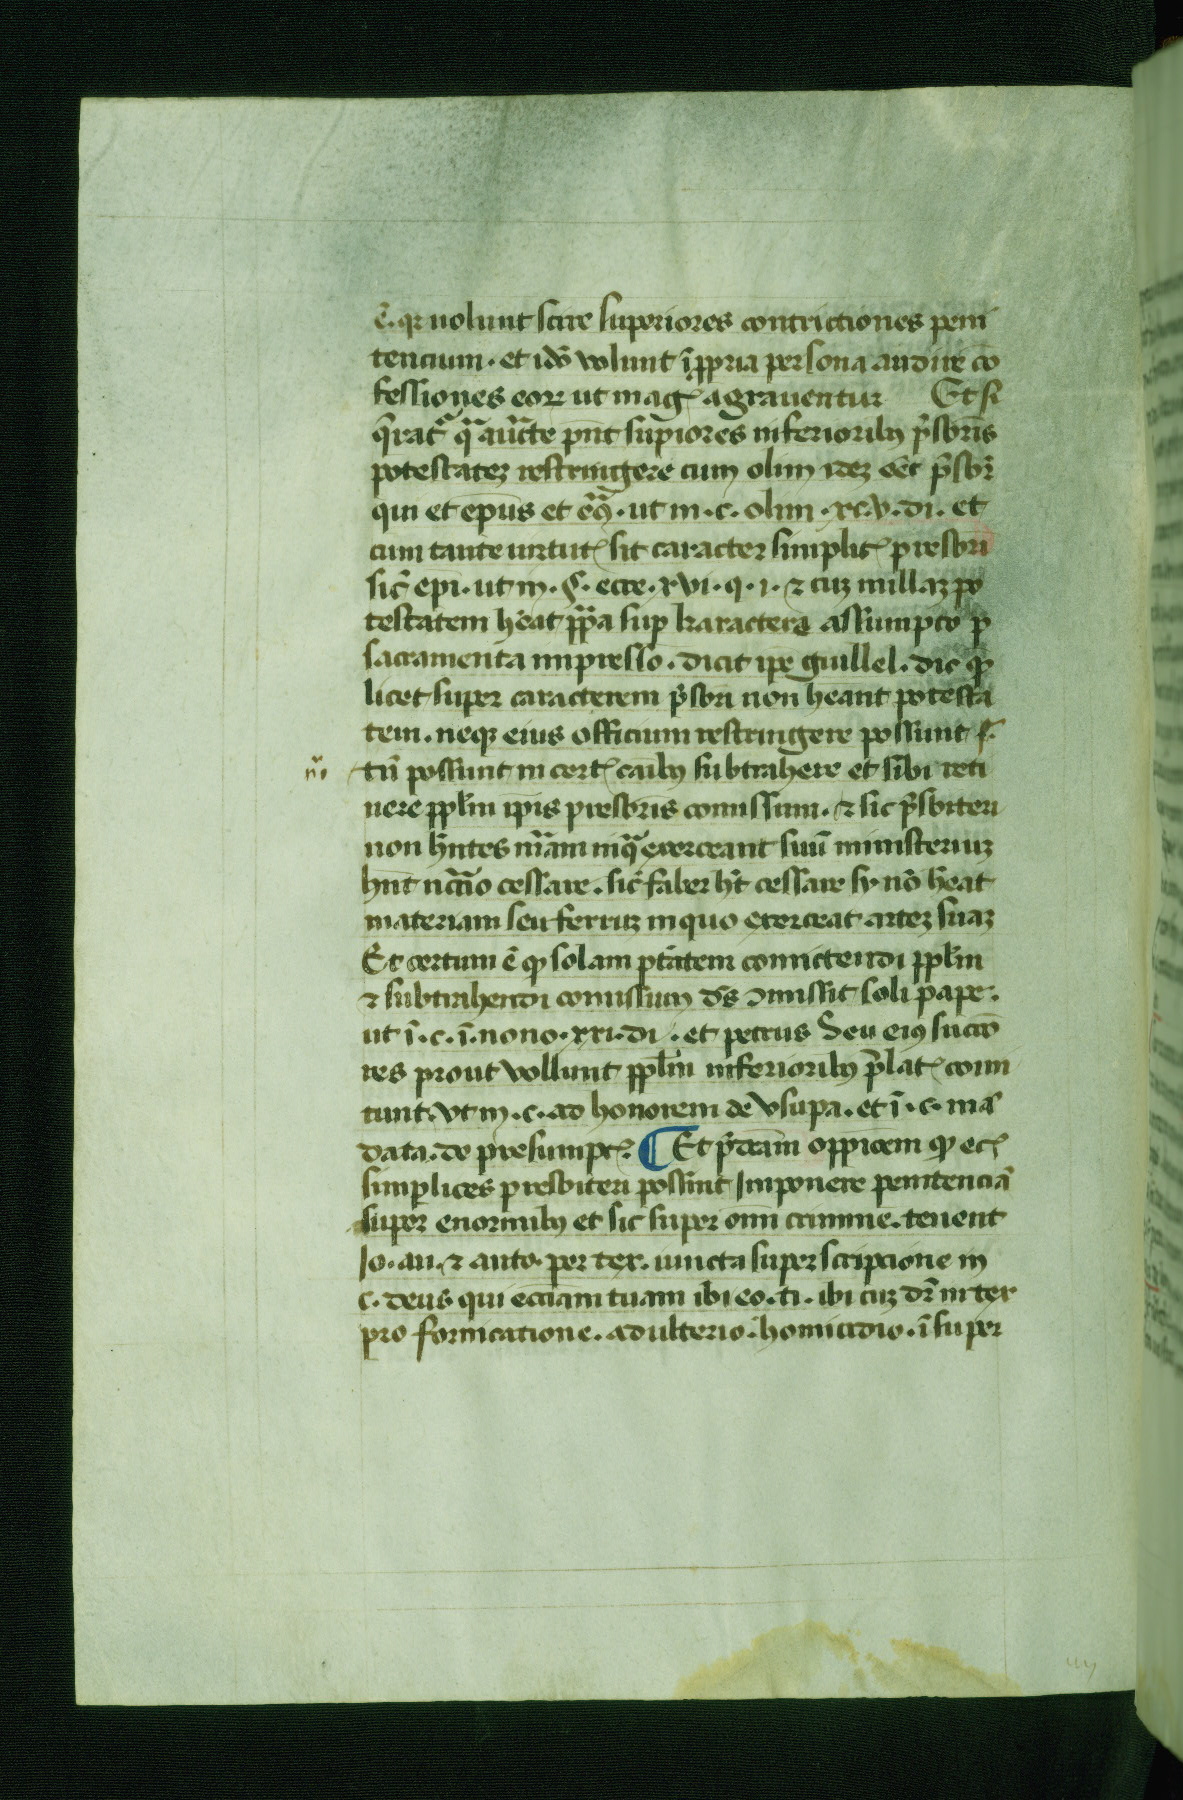 ē. qr uolunt scire superiores contrictiones peni
tencium. et idō volunt īppria persona audire cō
fessiones eor ut mag agrauentur Et si
q̄rat qª auc̄te pn̄t supiores inferioribꝫ p̄sbris
potestatēꝫ restringere cum olim ideꝫ eēt p̄sbr
qui et ep̄us et ē9. ut in. c. olim. xc.v. di. et
cum tante uirtut sit caracter simplit presbri
sic̄ ep̄i. ut in. §. ecce. xvi. q. i. ⁊ cuꝫ nullaꝫ po
testatem heat ppª sup karactera assumpto p
sacramenta impresso. dicit ipē guillel. dic qꝫ
licet super caracterem p̄sbri non heant potesta
tem. neqꝫ eius officium restringere possunt
tn̄ possunt in cert caībꝫ subtrahere et sibi reti
nere pplm ipīs presbris comissum. ⁊ sic p̄sbiteri
non hn̄tes mr̄am in qua exerceant suū ministeriuꝫ
hn̄t nc̄cio cessare. sic̄ faber ht cessare sy nō heat
materiam seu ferruꝫ in quo exerceat arteꝫ suaꝫ
Et certum ē qꝫ solam ptātem comictendi pplm
⁊ subtrahendi comissum dn̄s dimissit soli pape.
ut ī. c. ī. nono. xxi. di. et petrus Seu eiꝰ succo
res prout vollunt pplm inferioribꝫ p̄lat comi
tunt. vt in. c. ad honorem de vsu pa. et ī. c. mā
data. de presumpt. ¶ Et p̄dcām oppioem qꝫ ec
simplices presbiteri possint Imponere penitenciā
super enormibꝫ et sic super omi crimine. tenent
Io. an. ⁊ anto. per tex. iuncta super scripcione in
c. deus qui ecc̄iam tuam ibi eo. ti. ibi cuꝫ dr̄ in tex
pro fornicatione. adulterio. homicidio. ī super